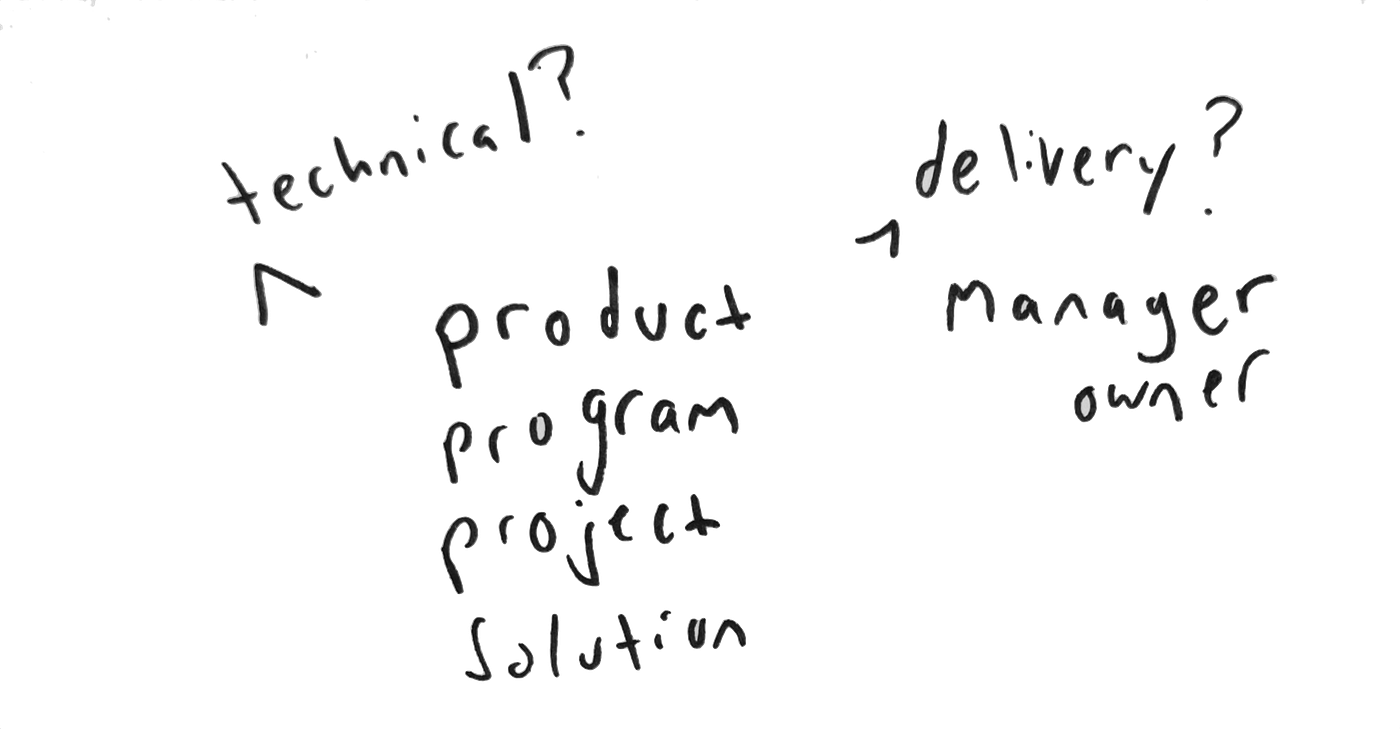 technical?
delivery?
product
manager
owner
program
project
solution